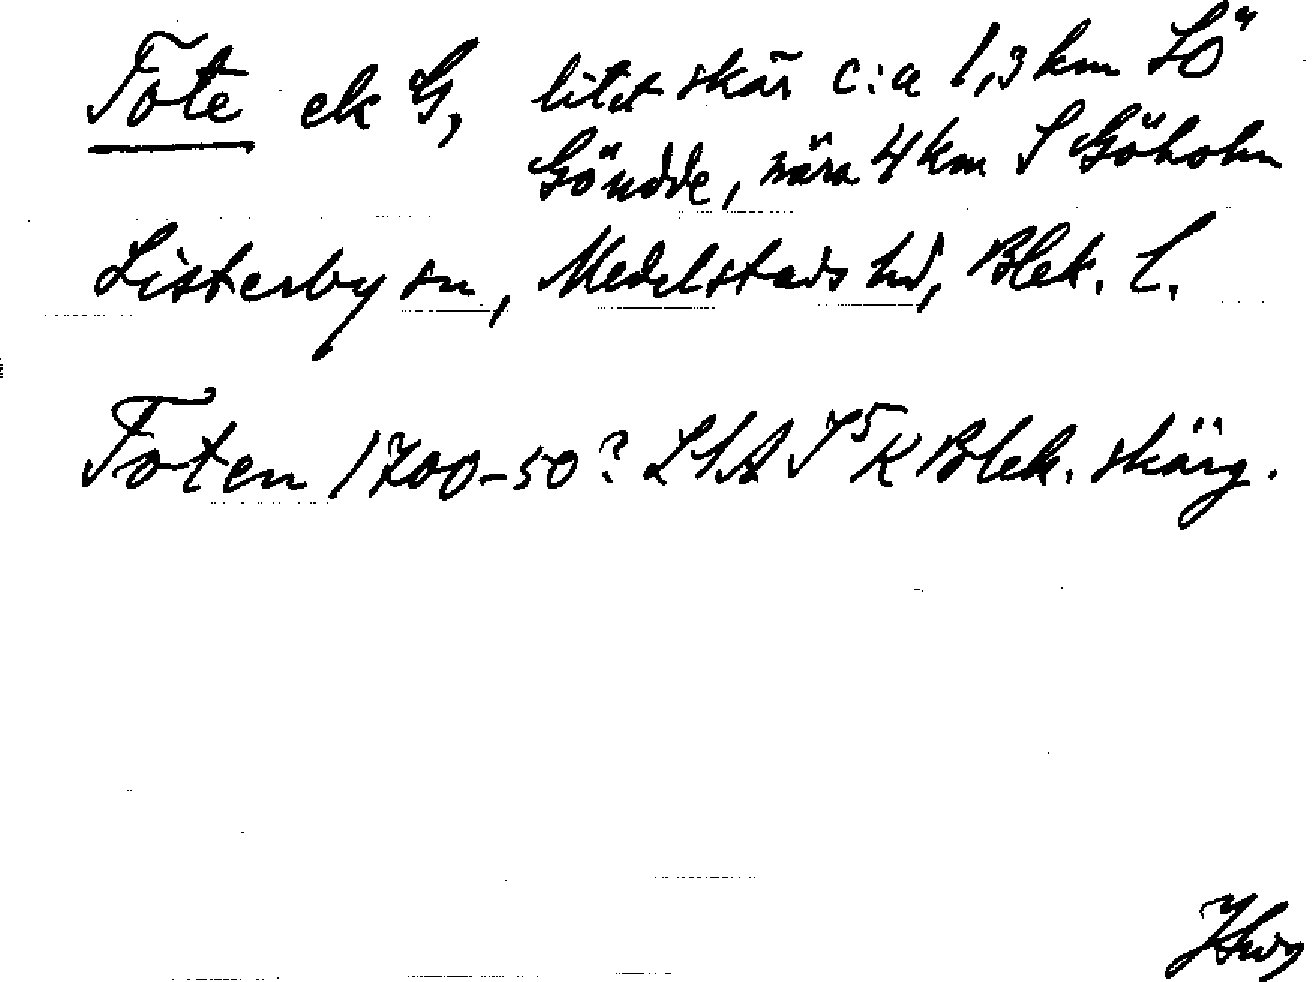 Tote ek G, litet skär c:a 1,3 km SÖ
Göudde, nära 4 km S Göholm
Listerby sn, Medelstads hd, Blek. l.
Toten 1700-50? LSA S5K Blek. skärg.